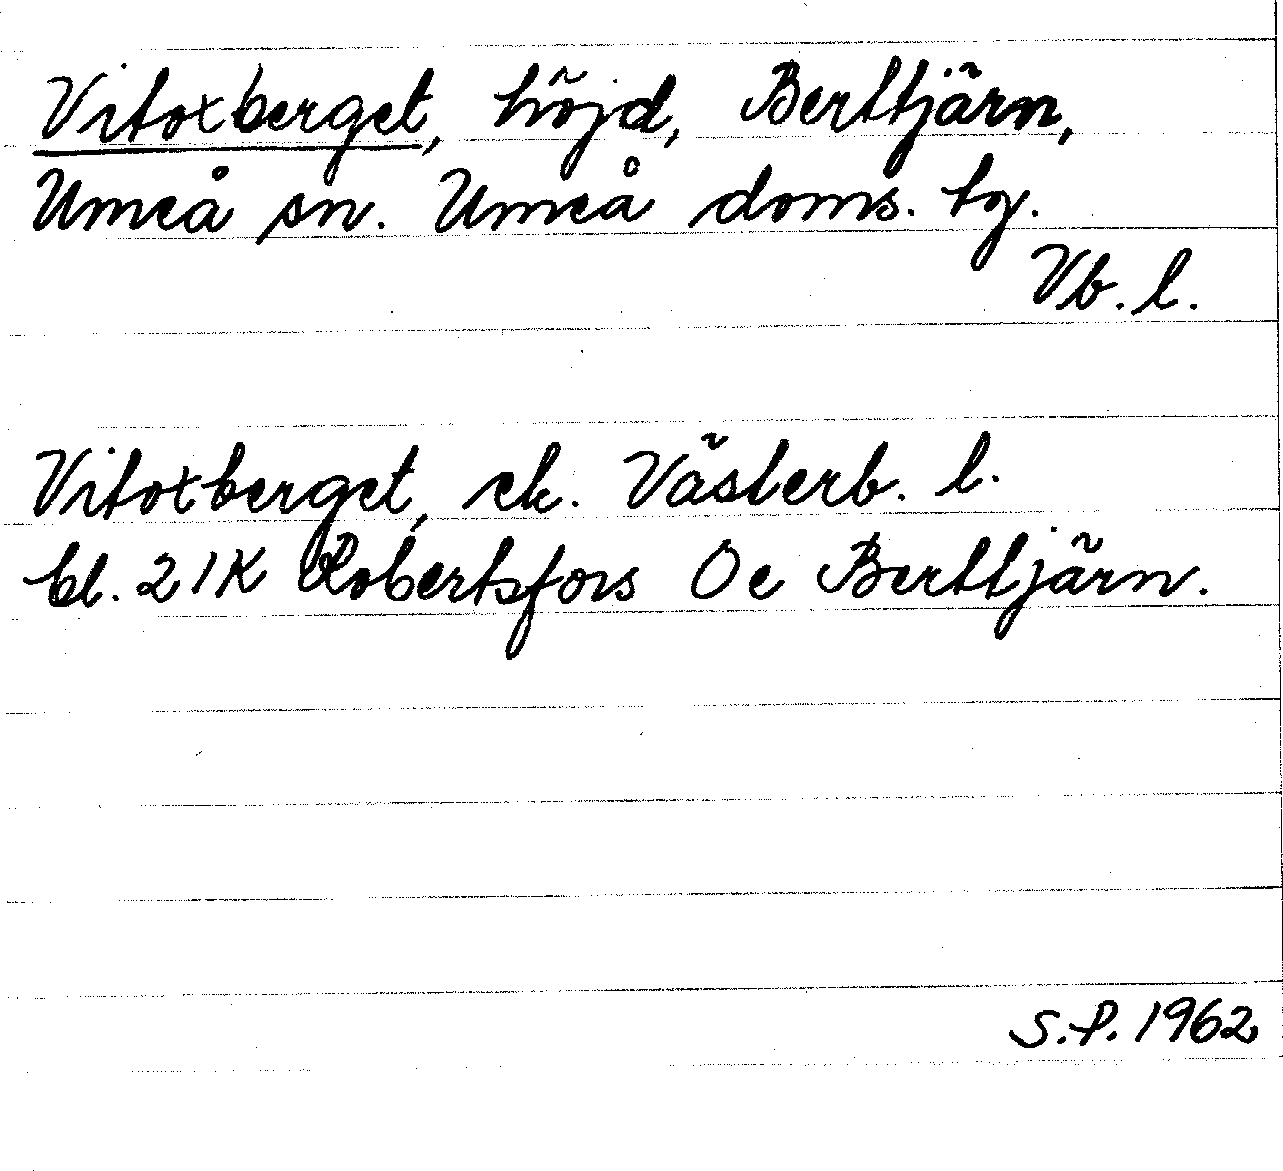 Vitoxberget, höjd, Berttjärn,
Umeå sn. Umeå doms. tg.
Vb. l.
Vitoxberget, ek. Västerb. l.
bl. 21K Robertsfors Oe Berttjärn.
S.P. 1962